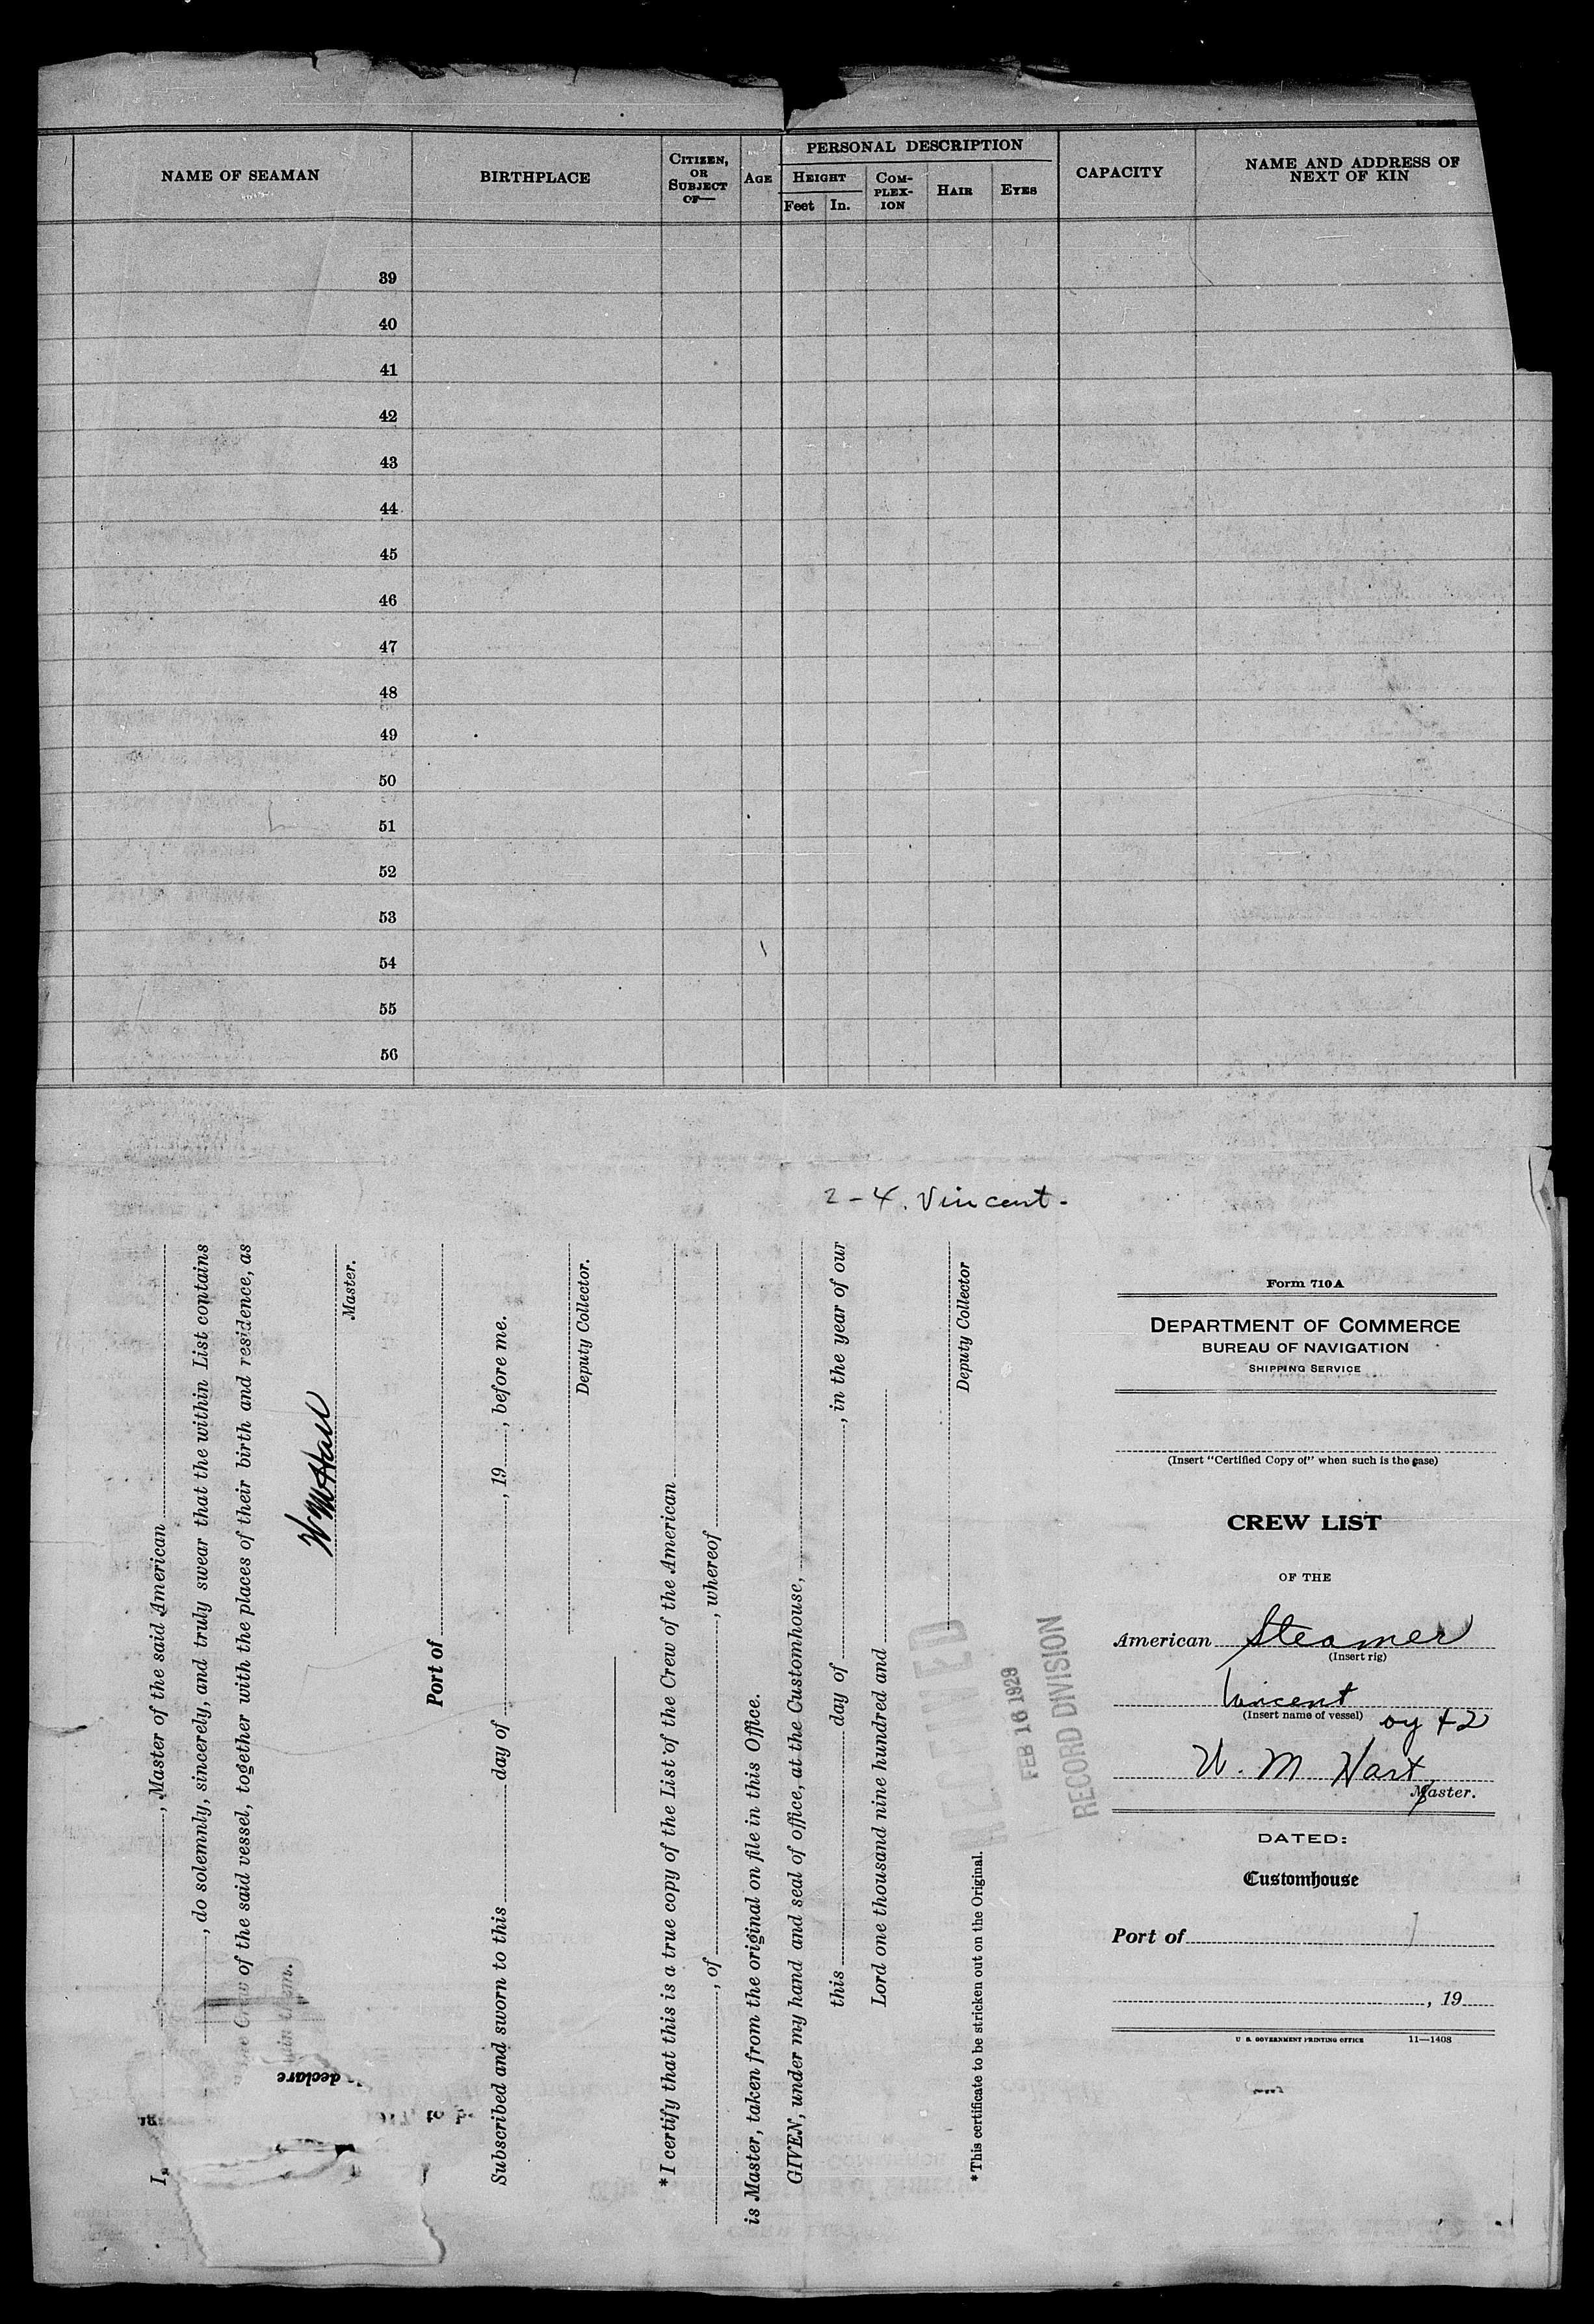 PERSONAL DESCRIPTION
NAME OF SEAMAN
BIRTHPLACE
CITIZEN, OR SUBJECT OF—
AGE
HEIGHT
Feet In.
COM-PLEX-ION
HAIR
EYES
CAPACITY
NAME AND ADDRESS OF
NEXT OF KIN
39
40
41
42
43
44
45
46
47
48
49
50
51
52
53
54
55
56
2-4. Vincent.
I, , Master of the said American
, do solemnly, sincerely, and truly swear that the within List contains
of the said vessel, together with the places of their birth and residence, as
declare
Master.
Port of
Subscribed and sworn to this day of , 19 , before me.
Deputy Collector.
*I certify that this is a true copy of the List of the Crew of the American
, of , whereof
is Master, taken from the original on file in this Office.
GIVEN, under my hand and seal of office, at the Customhouse,
this day of , in the year of our
Lord one thousand nine hundred and
Deputy Collector
*This certificate to be stricken out on the Original.
FEB 16 1929
RECORD DIVISION
Form 710A
DEPARTMENT OF COMMERCE
BUREAU OF NAVIGATION
SHIPPING SERVICE
(Insert "Certified Copy of" when such is the case)
CREW LIST
OF THE
American Steamer
(Insert rig)
Vincent
(Insert name of vessel)
W. M Hart
Master.
DATED:
Customhouse
Port of
, 19
U. S. GOVERNMENT PRINTING OFFICE 11—1408